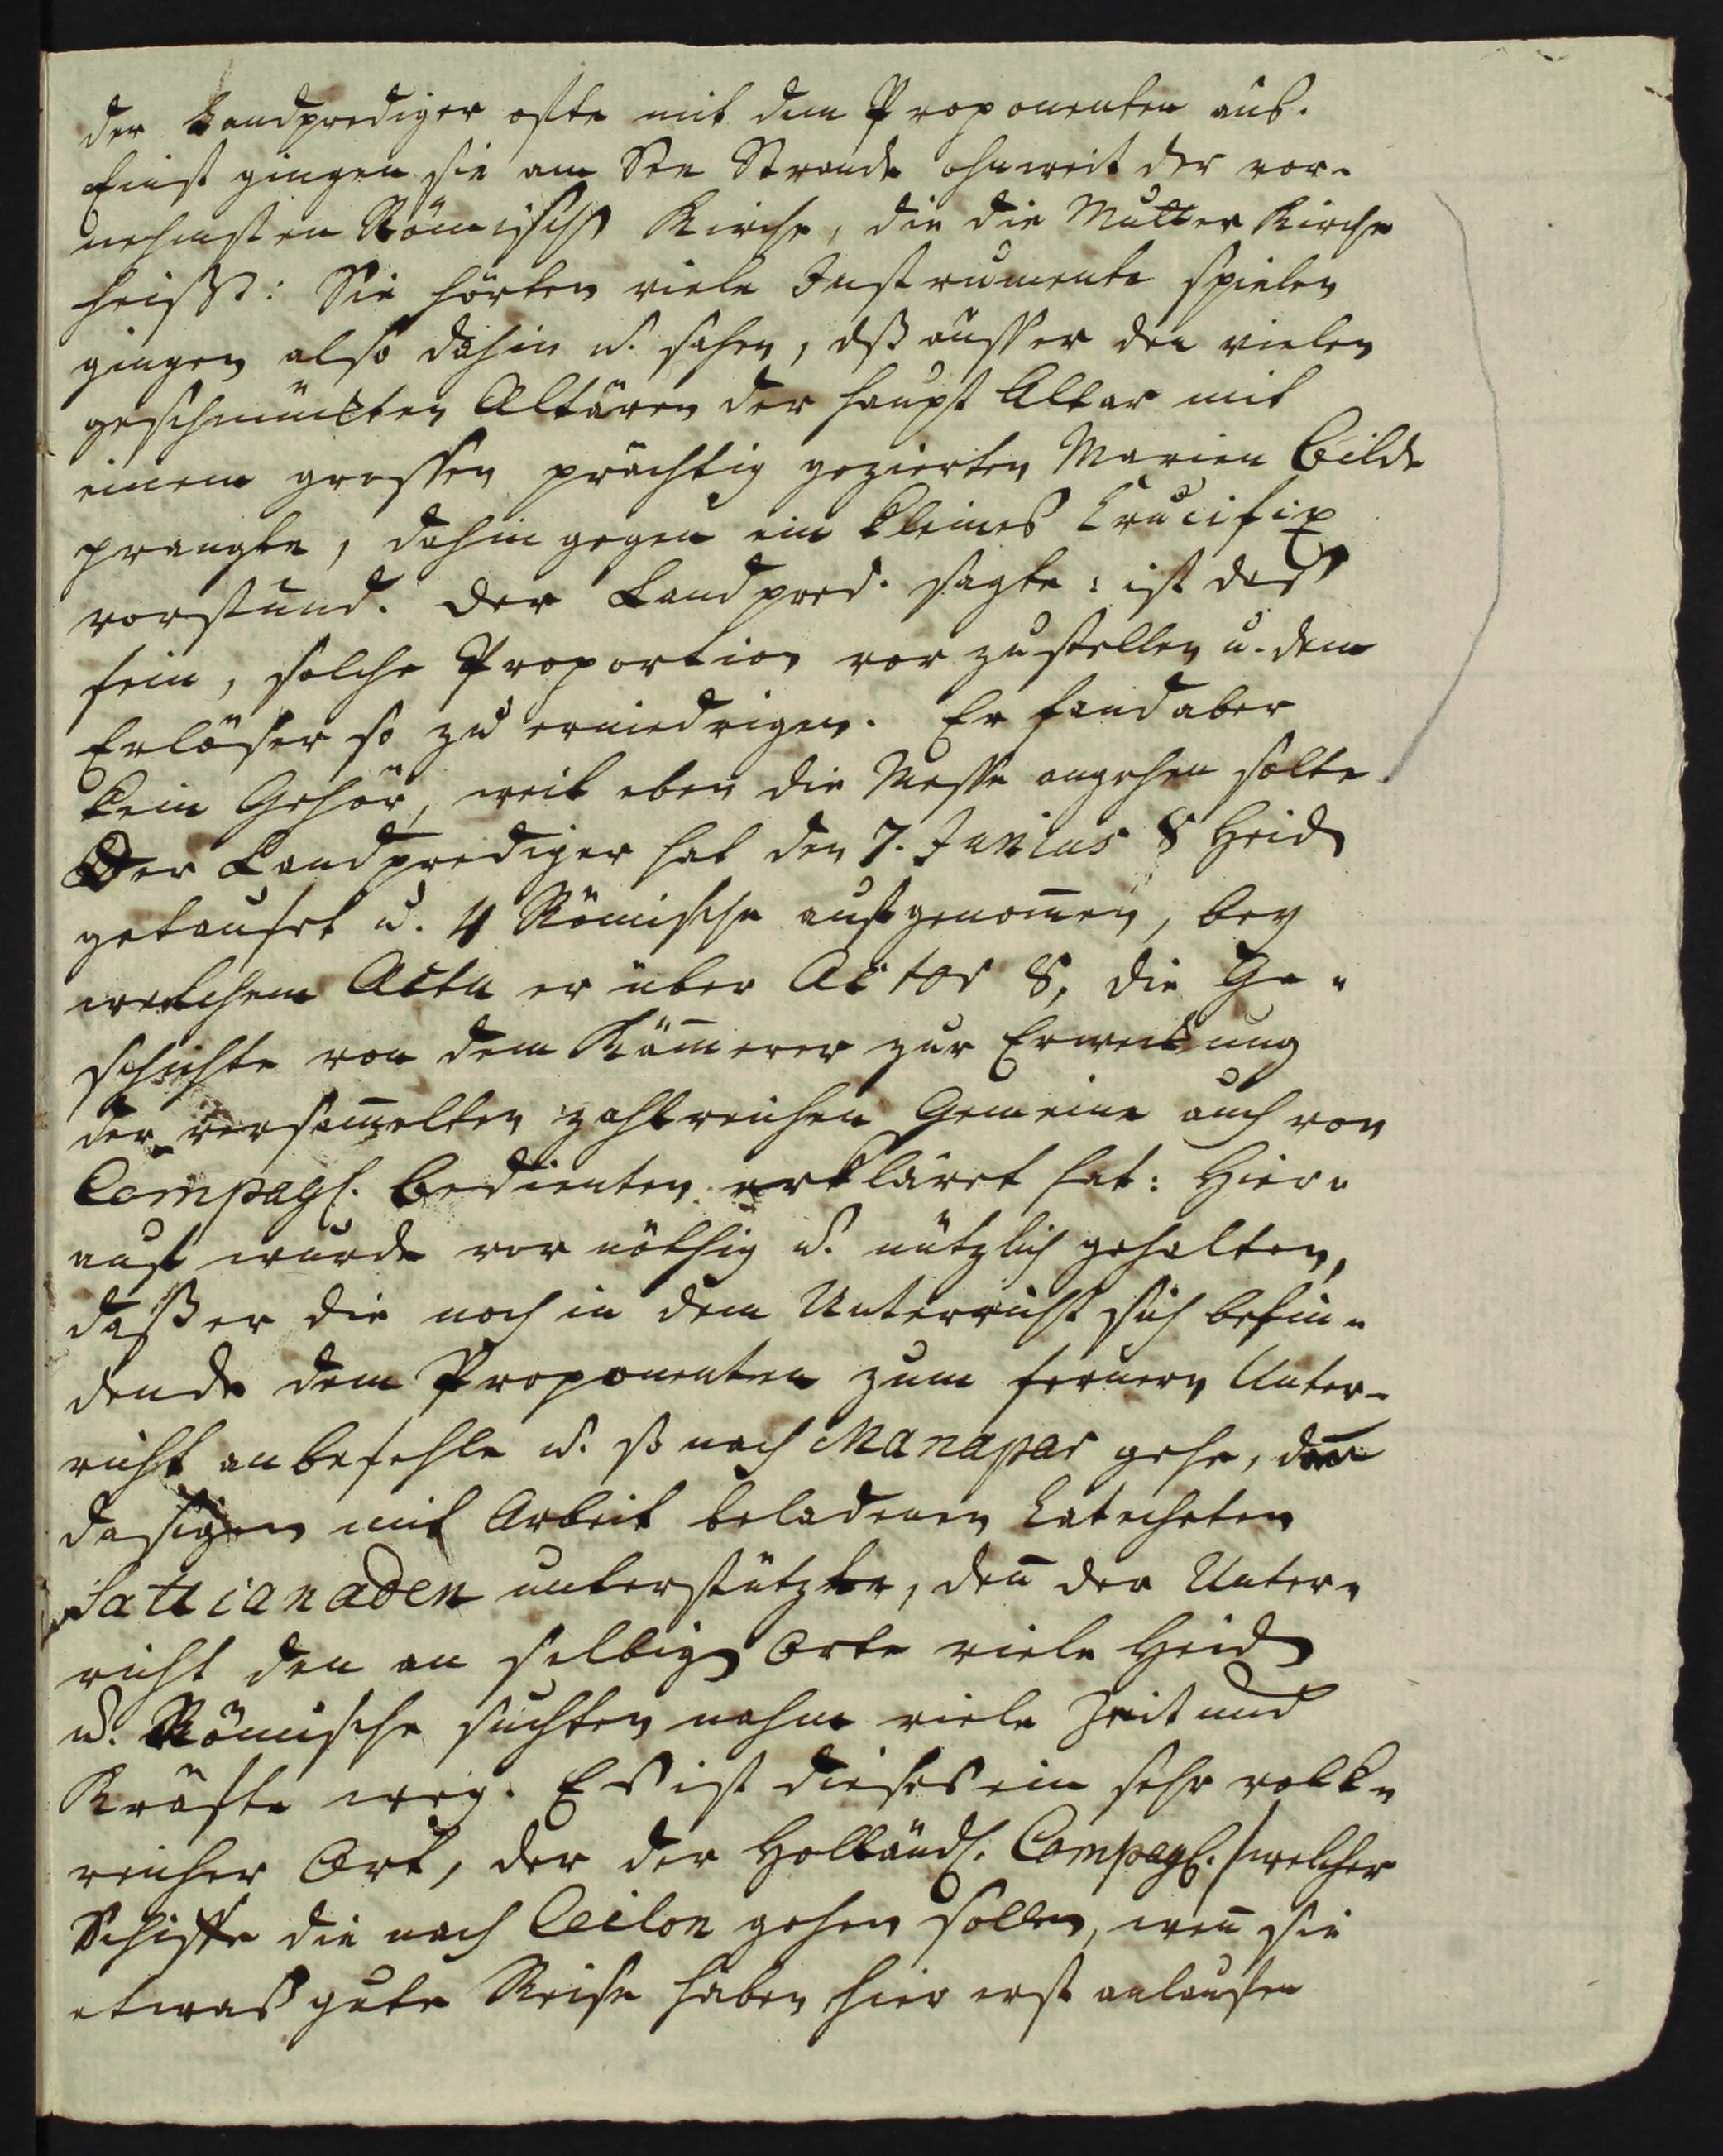 der Landprediger ofte mit dem Proponenten aus.
Einst gingen sie am See Strande ohnweit der vor-
nehmsten Römisch Kirche, die die Mutter Kirche
heisst: Sie hörten viele Instrumente spielen
gingen also dahin u. sahen, dß ausser den vielen
geschmückten Altären der Haupt Altar mit
einem grossen prächtig gezierten Marien Bilde
prangte, dahin gegen ein kleines Crucifix
vorstund. Der Landpred. sagte: ist das
fein, solche Proportion vor zustellen u. dem
Erlöser so zu erniedrigen. Er fand aber
kein Gehör, weil eben die Messe angehen solte.
Der Landprediger hat den 7. Junius 8 Heid
getauft u. 4 Römische aufgenom̅en, bey
welchem Actu er über Actor 8, die Ge-
schichte von dem Käm̅erer zur Erweckung
der versam̅elten zahlreichen Gemeine auch von
Compagl. bedienten erkläret hat: Hier-
auf wurde vor nöthig u. nützlich gehalten,
daß er die noch in dem Unterricht sich befin-
dende dem Proponenten zum fernern Unter-
richt anbefehle u. so nach Manapar gehe,
dasigen mit Arbeit beladenen Catecheten
Sattianaden unterstützte, den̅ der Unter-
richt den an selbig Orte viele Heid
u. Römische suchten nahm viele Zeit und
Kräfte weg. Es ist dieses ein sehr volck-
reicher Ort, der der Holländl. Compagl. /welcher
Schiffe die nach Ceilon gehen sollen, wen̅ sie
etwas gute Reise haben hier erst anlaufen